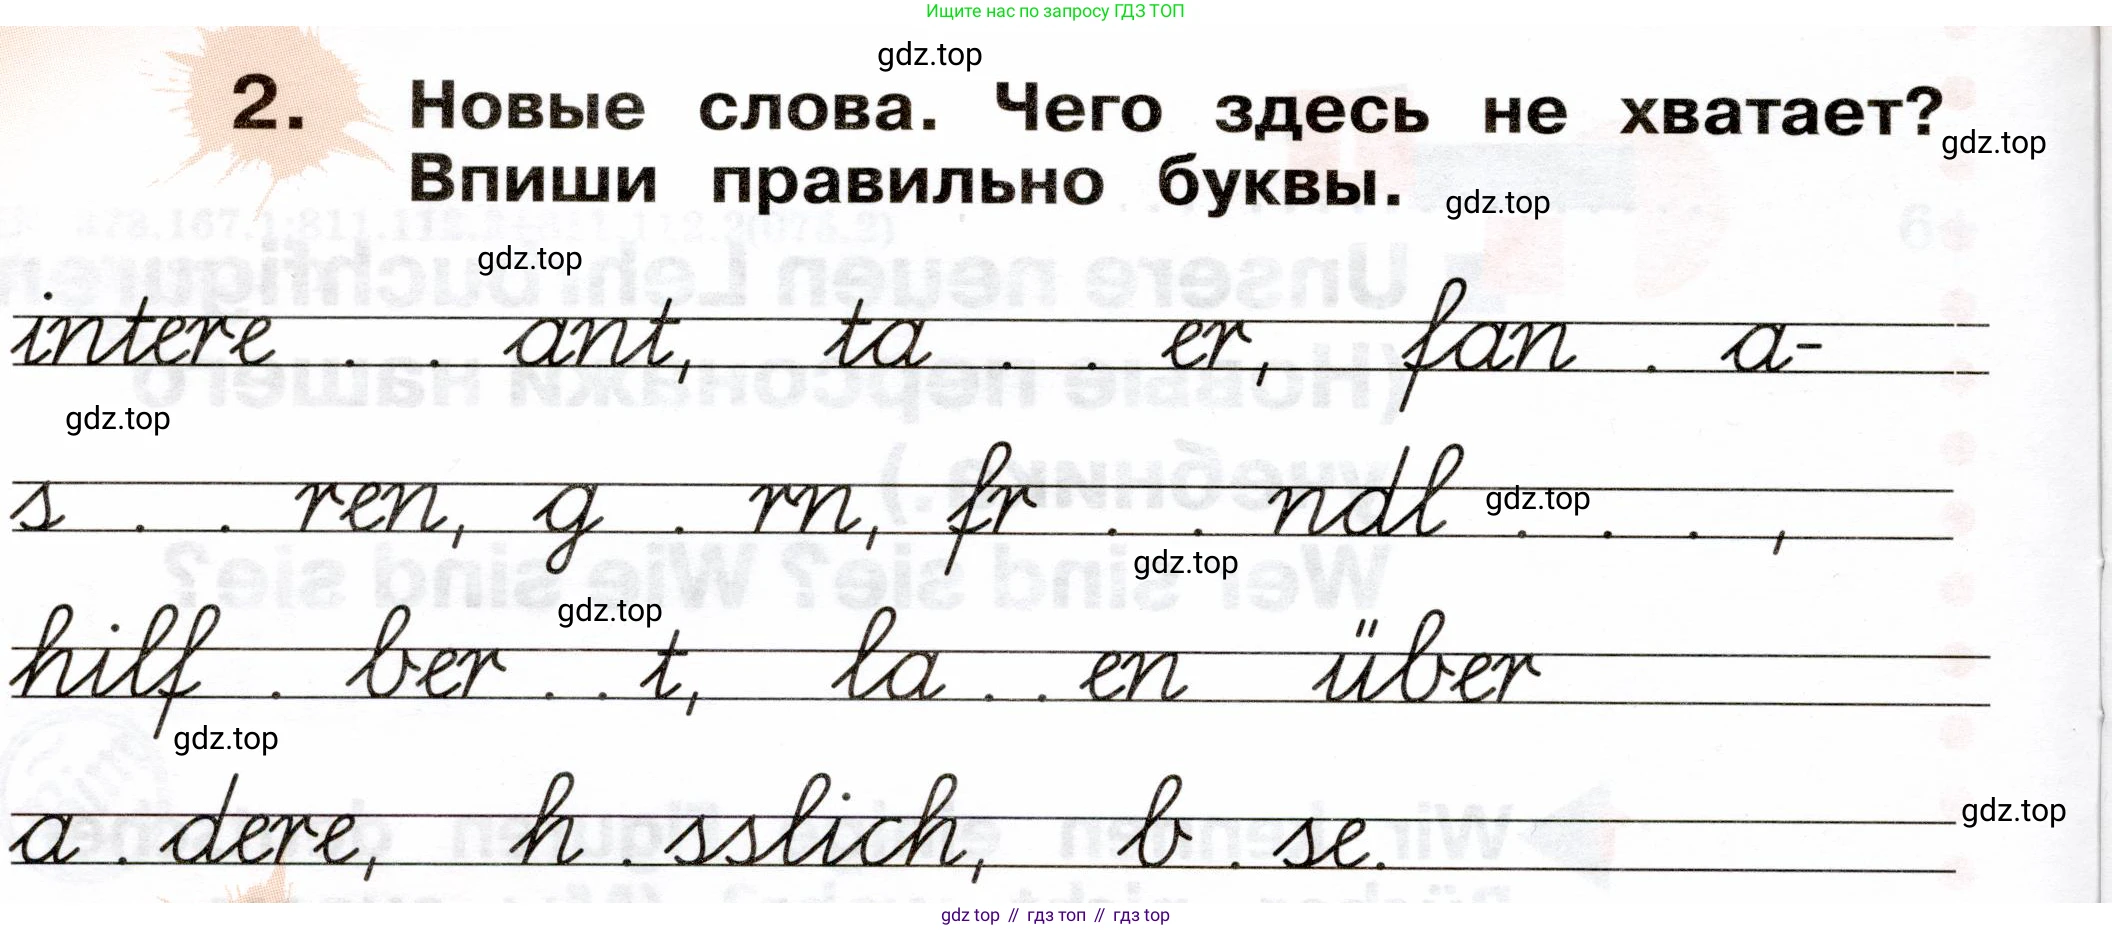 Ищите нас по запросу ГДЗ ТОП
gdz.top
2. Новые слова. Чего здесь не хватает?
gdz.top
Впиши правильно буквы.
gdz.top
gdz.top
intere . . ant, ta . . er, fan . a-
gdz.top
s . . ren, g . rn, fr . . ndl . . . ,
gdz.top
gdz.top
gdz.top
hilf . ber . . t, la . . en über
gdz.top
a . dere, h . sslich, b . se.
gdz.top
gdz top // гдз топ // гдз top